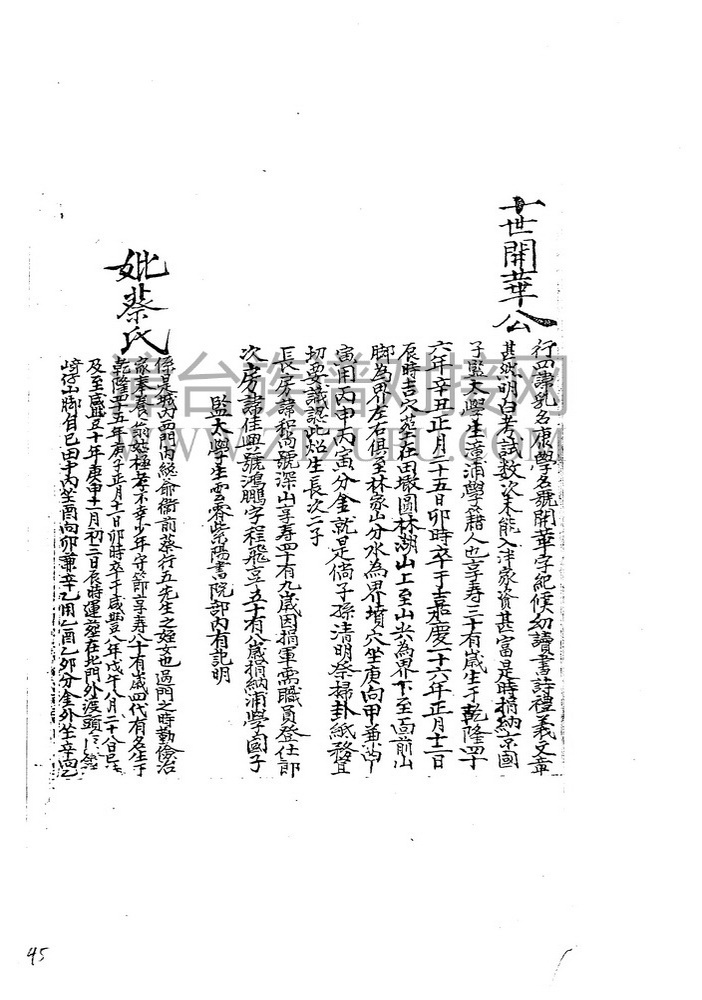 十世開華公
行四諱乳名康學名號開華字紀候幼讀書詩禮義文章
甚然明白考試數次未能入泮家資甚富是時捐納京國
子監太學生漳浦學籍人也享寿三十有歲生于乾隆四十
六年辛丑正月二十五日卯時卒于嘉慶二十六年正月十二日
辰時吉穴葬在田墩圓林湖山上至山尖為界下至面前山
脚為界左右俱至林家山分水為界墳穴坐庚向甲兼
寅用丙申丙寅分金就是倘子孫清明祭掃卦紙務宜
切要識認此始生長次二子
長房諱程尚號深山享寿四十有九歲因捐軍需職員登仕郎
次房諱佳興號鴻鵬字程飛享五十有八歲捐納浦學國子
監太學生雲霄紫陽書院部內有記明
妣蔡氏
係是城內西門尚總爺衙前蔡行五先生之姪女也過門之時勤儉治
家奉養翁姑極孝不幸少年守節享寿八十有歲四代有名生于
乾隆四十五年庚子正月十一日卯時卒于咸豐八年戊午八月二十八日
及至咸豐十年庚申十一月初三日辰時運葬在北門外渡頭
崎仔山脚自己田中內坐酉向卯兼辛乙用乙酉乙卯分金外坐辛向乙
45